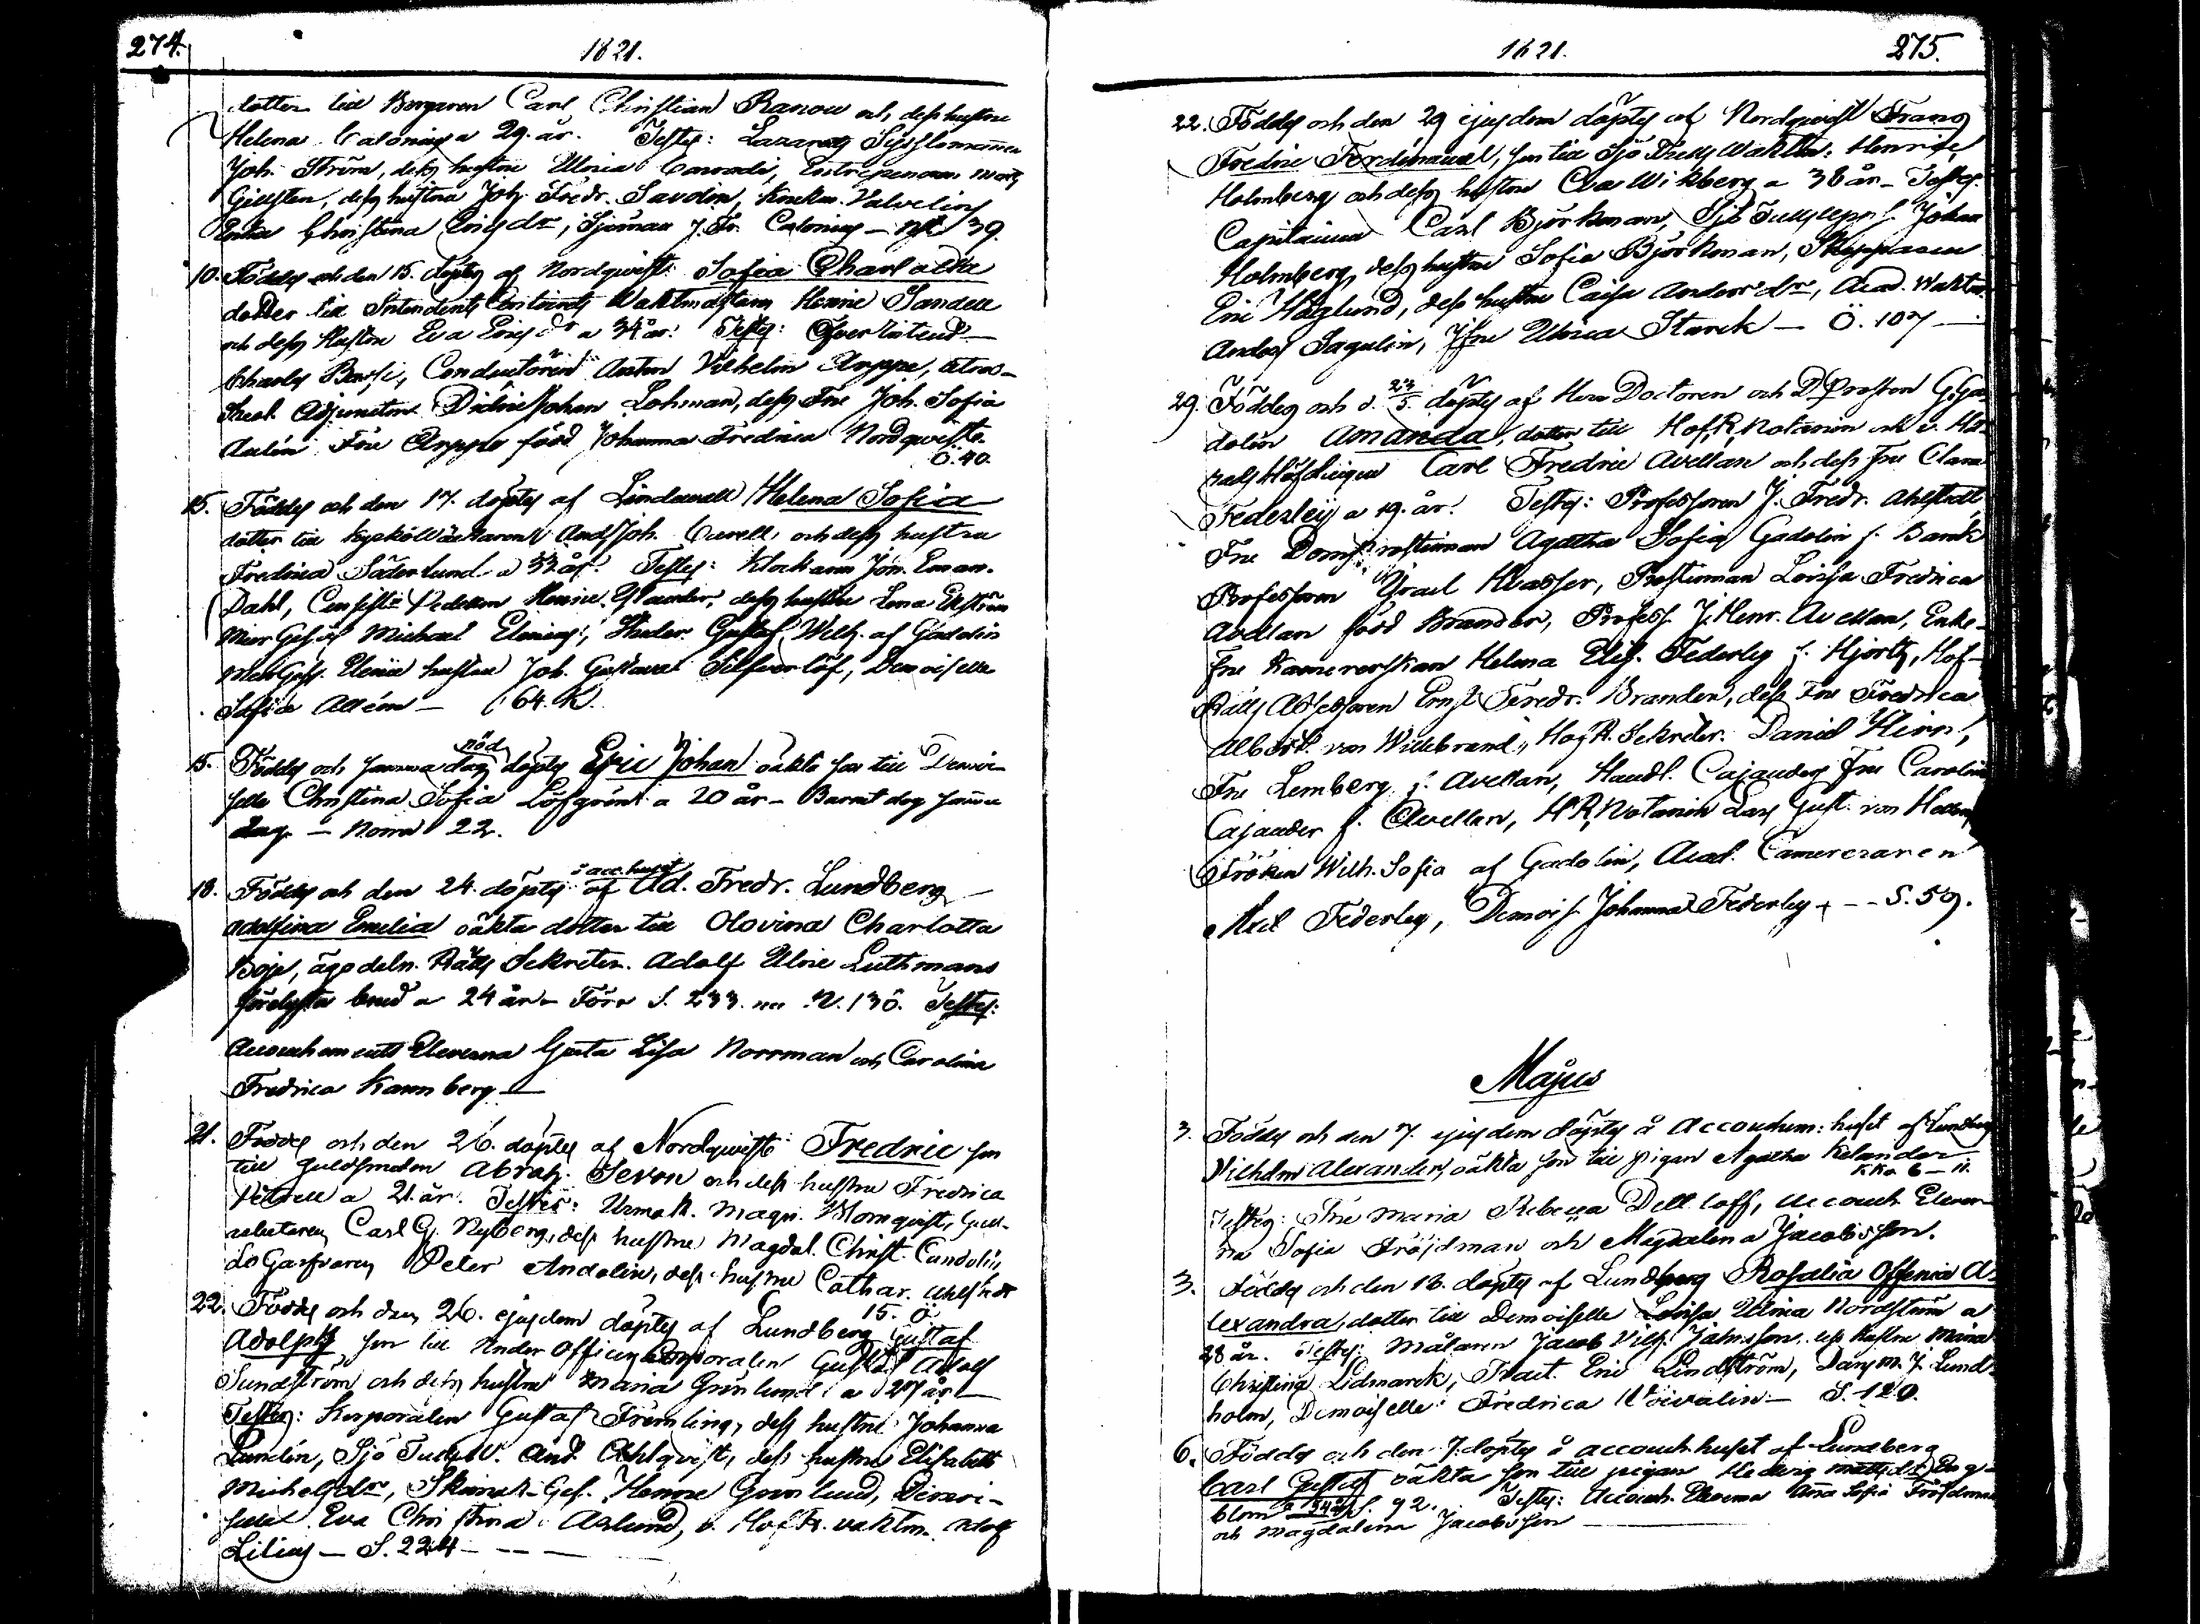 274.
1821.
dotter till Borgaren Carl Christian Ranow och dess hustru
Helena Calonius a 29. år. Testes: Lazaretts Sysslomannen
Joh. Ström, dess hustru Ulrica
Gillsten, dess hustru Joh. Fredr. Savdon,
Enka Christina Ericsdr, Sjöman J. Fr. Calonius — 39.
10. Föddes och den 15. döptes af Nordqwist Sofia Charlotta
dotter till Intendents Contoirets Waktmästaren Henric Sandell
och dess Hustru Eva Ericsdr a 34 år. Testes: Öfver Intend.
Charles Bassi, Conductören Anton Vilhelm Arppe,
Adjuncten Didric Johan Lohman, dess Fru Joh. Sofia
Aulin Fru Arppe född Johanna Fredrica Nordqwist.
Ö. 40.
15. Föddes och den 17. döptes af Lindewall Helena Sofia
dotter till And. Joh. och dess hustru
Fredrica Söderlund a 32 år. Testes: Klockaren Joh. Eman.
Dahl, Henric Glander, dess hustru Lena Ekström
Mur Ges. Michael Elenius, Studer. Gustaf Wilh. af Gadolin
Mur Ges. hustru Joh. Gustava Silfverlöf, Demoiselle
Sofia Allén — 64. K.
nöd
15. Föddes och samma dag döptes Eric Johan oäkta son till Demoi-
selle Christina Sofia Löfgrén a 20 år — Barnet dog samma
dag. — Norra 22.
i acc. huset
18. Föddes och den 24. döptes af Ad. Fredr. Lundberg
Adolfina Emelia oäkta dotter till Olovina Charlotta
Boje, ägodeln. Rätts Sekreter. Adolf Ulric Luthmans
förelysta brud a 24 år — Förr S. 233. nu N. 130. Testes:
Accouchements Eleverna Greta Lisa Norrman och Carolina
Fredrica Kannberg —
21. Föddes och den 26. döptes af Nordqwist Fredric son
till Guldsmeden Abrah. Sevon och dess hustru Fredrica
a 21. år. Testes: Urmak. Magn. Blomqwist, Guld-
arbetaren Carl G. Nyberg, dess hustru Magdal. Christ. Cundelin,
Lo Garfvaren Peter Andelin, dess hustru Cathar. Ahlstedt
15. Ö
22. Föddes och den 26. ejusdem döptes af Lundberg Gustaf
Adolph son till Under Officers Corporalen Gustaf Adolf
Sundström och dess hustru Maria Grönlund a 27 år —
Testes: Korporalen Gustaf Främling, dess hustru Johanna
Lundin, Sjö Tulls V. And. Ahlqvist, dess hustru Elisabeth
Michelsdr, Skinnar Ges. Henric Grönlund, Demoi-
selle Eva Christina Aslund, v. Hof R. vaktm. Adolf
Lilius — S. 224 — — —
1821.
275.
22. Föddes och den 29 ejusdem döptes af Nordqwist Frans
Fredric Ferdinand, son till Sjö Tulls Waktm. Henric
Holmberg och dess hustru Eva Wikberg a 38 år — Testes:
Capitainen Carl Björkman, Sjö Johan
Holmberg, dess hustru Sofia Björkman, Skepparen
Eric Höglund, dess hustru Caisa Andersdr, Acad. Waktm.
Anders Sagulin, Jfru Ulrica Starck — Ö. 107 —
29. Föddes och d. 23/5. döptes af Herr Doctoren och D Prosten G. Ga-
dolin Amanda, dotter till Hof R. Notarien och v. Hä-
radshöfdingen Carl Fredric Avellan och dess Fru Clara
Federley a 19. år. Testes: Professoren J. Fredr. Ahlstedt,
Fru Domprostinnan Agatha Sofia Gadolin f. Banck
Professoren Israel Hwasser, Prostinnan Loisa Fredrica
Avellan född Brander, Profess. J. Henr. Avellan, Enke-
Fru Kamrerskan Helena Elis. Federley f. Hjort, Hof-
Rätts Assessoren Ernst Fredr. Brander, dess Fru Fredrica
Albert. von Willebrand, Hof R. Sekreter. Daniel Hirn,
Fru Lemberg f. Avellan, Handl. Cajander, Fru Carolina
Cajander f. Avellan, H R Notarien Lars Gust. von Hellens
Fröken Wilh. Sofia af Gadolin, Acad. Camereraren
Axel Federley, Demois. Johanna Federley — — S. 59.
Majus
3. Föddes och den 7. ejusdem döptes å Accouchem: huset af Lundberg
Vilhelm Alexander, oäkta son till pigan Agatha Kelander
KKo 6 — 11.
Testes: Fru Maria Rebecca Dell. loff, Accouch. Elever-
na Sofia Fröjdman och Magdalena Jacobsson.
3. Föddes och den 16. döptes af Lundberg Rosalia Offenia A-
lexandra, dotter till Demoiselle Lovisa Ulrica Nordström a
28 år. Testes: Målaren Jacob Vilh. Jahnsson, dess Hustru Maria
Christina Lidmarck, Trait. Eric Lindström, J. Lund-
holm, Demoiselle Fredrica — S. 120.
6. Föddes och den 7. döptes å accouch. huset af Lundberg
Carl Gustaf oäkta son till pigan Hedvig Mattsdr Eng-
blom a 34 år S. 92. Testes: Accouch. Eleverna Anna Sofia Fröjdman
och Magdalena Jacobsson —